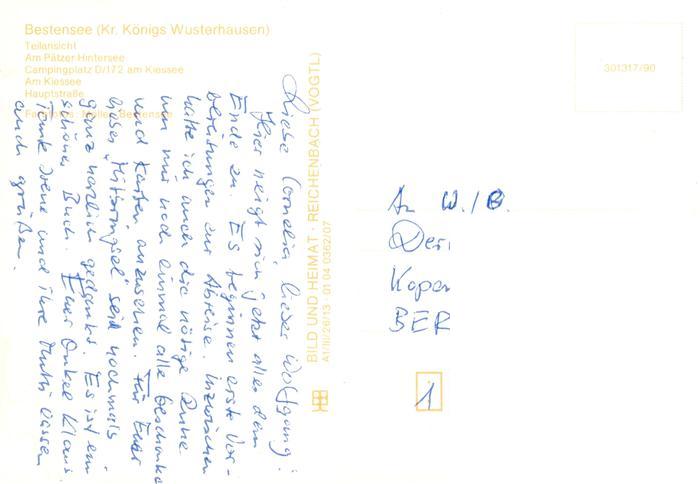 Bestensee (Kr. Königs Wusterhausen)
Teilansicht
Am Pätzer Hintersee
Campingplatz D/172 am Kiessee
Am Kiessee
Hauptstraße
Bestensee
Liebe Cornelia, lieber Wolfgang!
Hier neigt sich jetzt alles dem
Ende zu. Es beginnen erste Vor-
bereitungen zur Abreise. Inzwischen
hatte ich auch die nötige Ruhe
um mir noch einmal alle Geschenke
und Karten anzusehen. Für Euer
dieses "Mitbringsel" seid nochmals
ganz herzlich gedankt. Es ist ein
schönes Buch. Euer Onkel Klaus
Tante Irene und ihre Mutti lassen
auch grüßen.
BILD UND HEIMAT · REICHENBACH (VOGTL)
A1/III/26/13 · 01 04 0362/07
301317/90
An W./B.
Deri
Kopen
BER
1